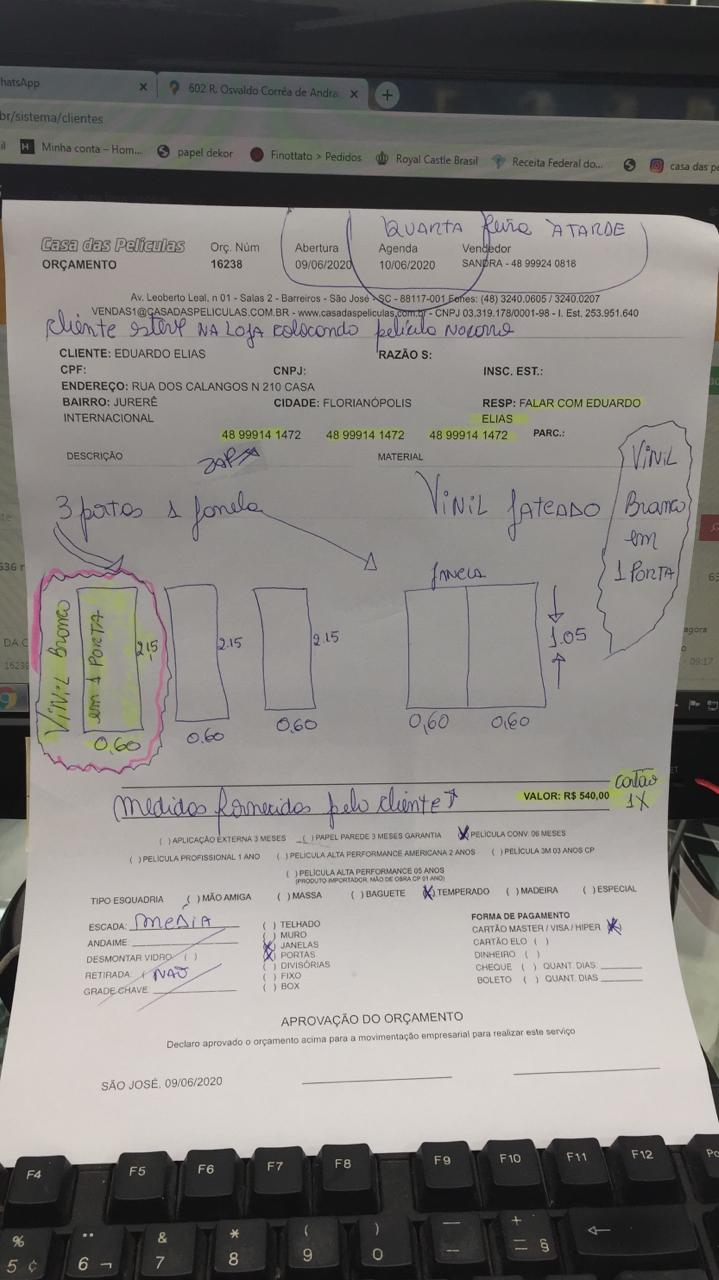 hatsApp
602 R. Osvaldo Corrêa de Andra
br/sistema/clientes
Minha conta – Hom... papel dekor Finottato > Pedidos Royal Castle Brasil Receita Federal do... casa das pe
QUARTA feira ATARDE
Casa das Películas Orç. Núm Abertura Agenda Vendedor
ORÇAMENTO 16238 09/06/2020 10/06/2020 SANDRA - 48 99924 0818
Av. Leoberto Leal, n 01 - Salas 2 - Barreiros - São José - SC - 88117-001 Fones: (48) 3240.0605 / 3240.0207
VENDAS1@CASADASPELICULAS.COM.BR - www.casadaspeliculas.com.br - CNPJ 03.319.178/0001-98 - I. Est. 253.951.640
Cliente esteve NA LOJA colocando película no carro
CLIENTE: EDUARDO ELIAS RAZÃO S:
CPF: CNPJ: INSC. EST.:
ENDEREÇO: RUA DOS CALANGOS N 210 CASA
BAIRRO: JURERÊ CIDADE: FLORIANÓPOLIS RESP: FALAR COM EDUARDO
INTERNACIONAL ELIAS
48 99914 1472 48 99914 1472 48 99914 1472 PARC.:
DESCRIÇÃO ZAPA MATERIAL
3 portas 1 janela
VINIL JATEADO
VINIL
Branco
em
1 PORTA
janela
VINIL Branco
em 1 PORTA
2.15
2.15
2.15
1.05
0,60
0.60
0.60
0,60
0,60
(medidas fornecidas pelo cliente)
VALOR: R$ 540,00
cartão
1X
( ) APLICAÇÃO EXTERNA 3 MESES ( ) PAPEL PAREDE 3 MESES GARANTIA X PELÍCULA CONV. 06 MESES
( ) PELÍCULA PROFISSIONAL 1 ANO ( ) PELÍCULA ALTA PERFORMANCE AMERICANA 2 ANOS ( ) PELÍCULA 3M 03 ANOS CP
( ) PELÍCULA ALTA PERFORMANCE 05 ANOS
(PRODUTO IMPORTADOR, MÃO DE OBRA CP 01 ANO)
TIPO ESQUADRIA ( ) MÃO AMIGA ( ) MASSA ( ) BAGUETE (X) TEMPERADO ( ) MADEIRA ( ) ESPECIAL
ESCADA: MEDIA
ANDAIME:
DESMONTAR VIDRO: ( )
RETIRADA: ( NAO
GRADE CHAVE:
( ) TELHADO
( ) MURO
(X) JANELAS
(X) PORTAS
( ) DIVISÓRIAS
( ) FIXO
( ) BOX
FORMA DE PAGAMENTO
CARTÃO MASTER / VISA / HIPER (X)
CARTÃO ELO ( )
DINHEIRO ( )
CHEQUE ( ) QUANT. DIAS:
BOLETO ( ) QUANT. DIAS
APROVAÇÃO DO ORÇAMENTO
Declaro aprovado o orçamento acima para a movimentação empresarial para realizar este serviço
SÃO JOSÉ. 09/06/2020
F4 F5 F6 F7 F8 F9 F10 F11 F12
% & * ( ) + 
5 ¢ 6 ¬ 7 8 9 0 = §